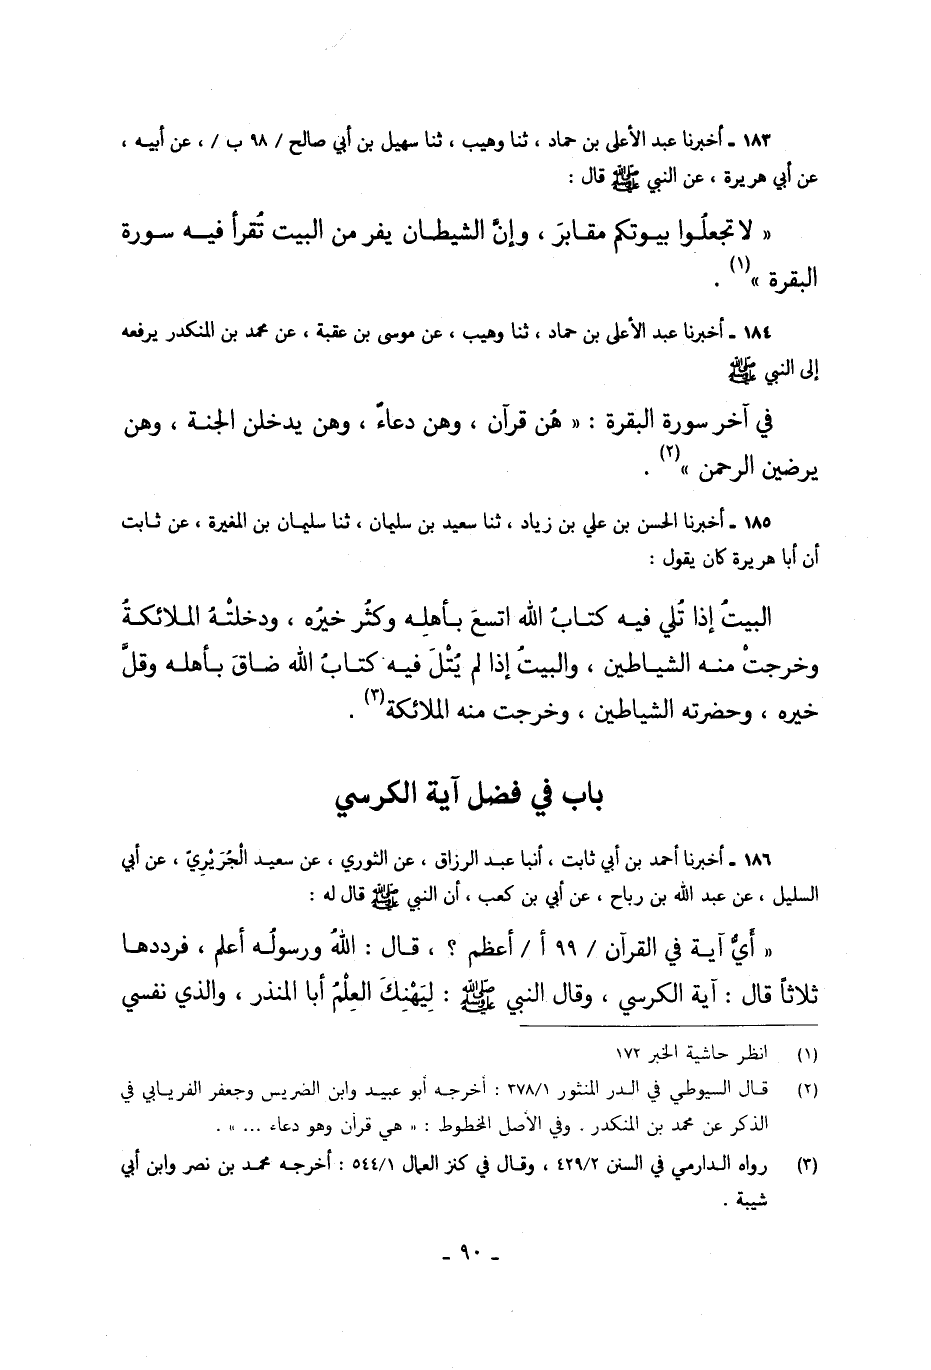 ١٨٣ ـ أخبرنا عبد الأعلى بن حماد ، ثنا وهيب ، ثنا سهيل بن أبي صالح / ٩٨ ب / ، عن أبيه ،
عن أبي هريرة ، عن النبي ﷺ قال :
« لا تجعلُوا بيوتكم مقابرَ ، وإنَّ الشيطان يفر من البيت تُقرأ فيه سورة
البقرة »(١) .
١٨٤ ـ أخبرنا عبد الأعلى بن حماد ، ثنا وهيب ، عن موسى بن عقبة ، عن محمد بن المنكدر يرفعه
إلى النبي ﷺ
في آخر سورة البقرة : « هُن قرآن ، وهن دعاءٌ ، وهن يدخلن الجنة ، وهن
يرضين الرحمن »(٢) .
١٨٥ ـ أخبرنا الحسن بن علي بن زياد ، ثنا سعيد بن سليمان ، ثنا سليمان بن المغيرة ، عن ثابت
أن أبا هريرة كان يقول :
البيتُ إذا تُلي فيه كتابُ الله اتسعَ بأهلِه وكثُر خيرُه ، ودخلتْهُ الملائكةُ
وخرجتْ منه الشياطين ، والبيتُ إذا لم يُتْلَ فيه كتابُ الله ضاقَ بأهله وقلَّ
خيره ، وحضرته الشياطين ، وخرجت منه الملائكة(٣) .
باب في فضل آية الكرسي
١٨٦ ـ أخبرنا أحمد بن أبي ثابت ، أنبا عبد الرزاق ، عن الثوري ، عن سعيد الْجُرَيْرِيّ ، عن أبي
السليل ، عن عبد الله بن رباح ، عن أبي بن كعب ، أن النبي ﷺ قال له :
« أَيُّ آية في القرآن / ٩٩ أ / أعظم ؟ ، قال : اللهُ ورسولُه أعلم ، فرددها
ثلاثاً قال : آية الكرسي ، وقال النبي ﷺ : لِيَهْنِكَ العِلْمُ أبا المنذر ، والذي نفسي
(١) انظر حاشية الخبر ١٧٢
(٢) قال السيوطي في الدر المنثور ٣٧٨/١ : أخرجه أبو عبيد وابن الضريس وجعفر الفريابي في
الذكر عن محمد بن المنكدر . وفي الأصل المخطوط : « هي قرآن وهو دعاء ... » .
(٣) رواه الدارمي في السنن ٤٢٩/٢ ، وقال في كنز العمال ٥٤٤/١ : أخرجه محمد بن نصر وابن أبي
شيبة .
ـ ٩٠ ـ